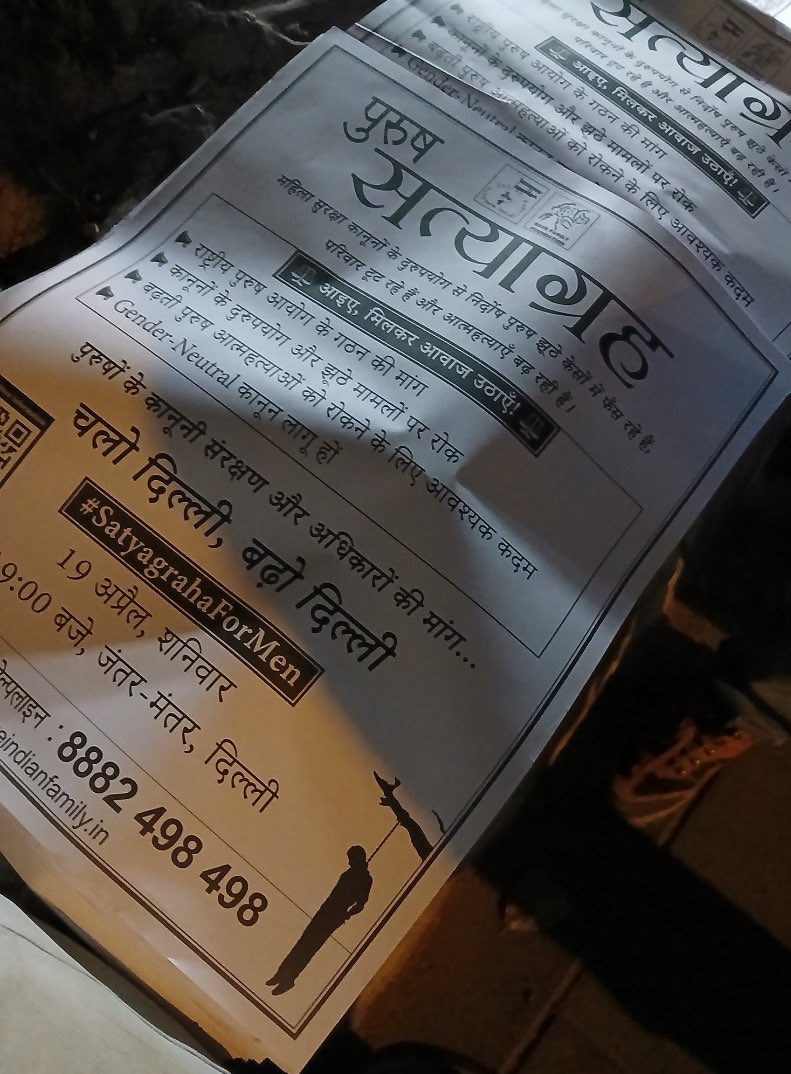 सत्याग्रह
महिला सुरक्षा कानूनों के दुरुपयोग से निर्दोष पुरुष झूठे केसों
परिवार टूट रहे हैं और आत्महत्याएँ बढ़ रही हैं।
आइए, मिलकर आवाज उठाएँ!
राष्ट्रीय पुरुष आयोग के गठन की मांग
कानूनों के दुरुपयोग और झूठे मामलों पर रोक
बढती पुरुष आत्महत्याओं को रोकने के लिए आवश्यक कदम
Gender-Neutral
पुरुष
सत्याग्रह
SAVE FAMILY
FOUNDATION
महिला सुरक्षा कानूनों के दुरुपयोग से निर्दोष पुरुष झूठे केसों में फँस रहे हैं,
परिवार टूट रहे हैं और आत्महत्याएँ बढ़ रही हैं।
आइए, मिलकर आवाज उठाएँ!
राष्ट्रीय पुरुष आयोग के गठन की मांग
कानूनों के दुरुपयोग और झूठे मामलों पर रोक
बढती पुरुष आत्महत्याओं को रोकने के लिए आवश्यक कदम
Gender-Neutral कानून लागू हों
पुरुषों के कानूनी संरक्षण और अधिकारों की मांग...
चलो दिल्ली, बढ़ो दिल्ली
#SatyagrahaForMen
19 अप्रैल, शनिवार
9:00 बजे, जंतर-मंतर, दिल्ली
ल्पलाइन : 8882 498 498
eindianfamily.in